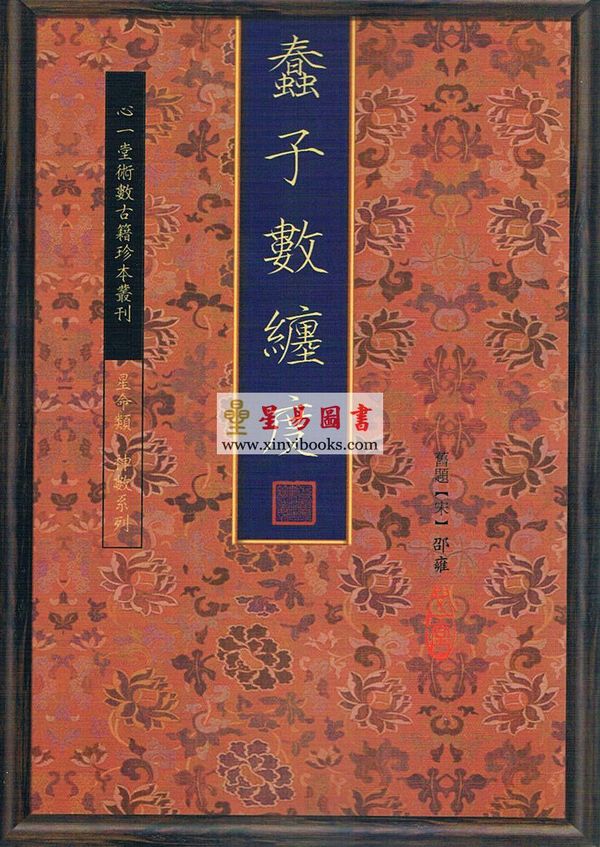 蠢子數纏度
舊題【宋】邵雍
心一堂術數古籍珍本叢刊
星命類 神數系列
星易圖書
www.xinyibooks.com